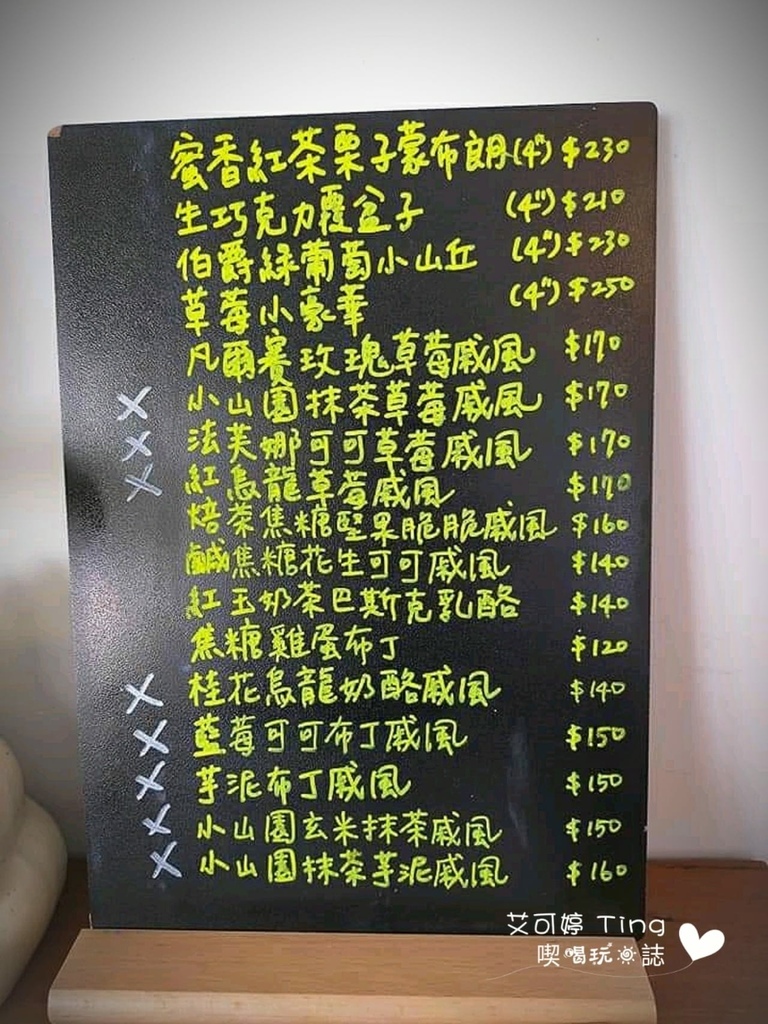 蜜香紅茶栗子蒙布朗(4") $230
生巧克力覆盆子 (4") $210
伯爵綠葡萄小山丘 (4") $230
草莓小豪華 (4") $250
凡爾賽玫瑰草莓戚風 $170
X 小山園抹茶草莓戚風 $170
X 法芙娜可可草莓戚風 $170
X 紅烏龍草莓戚風 $170
焙茶焦糖堅果脆脆戚風 $160
鹹焦糖花生可可戚風 $140
紅玉奶茶巴斯克乳酪 $140
焦糖雞蛋布丁 $120
X 桂花烏龍奶酪戚風 $140
X 藍莓可可布丁戚風 $150
X 芋泥布丁戚風 $150
X 小山園玄米抹茶戚風 $150
X 小山園抹茶芋泥戚風 $160
艾可婷 Ting
喫喝玩☼誌